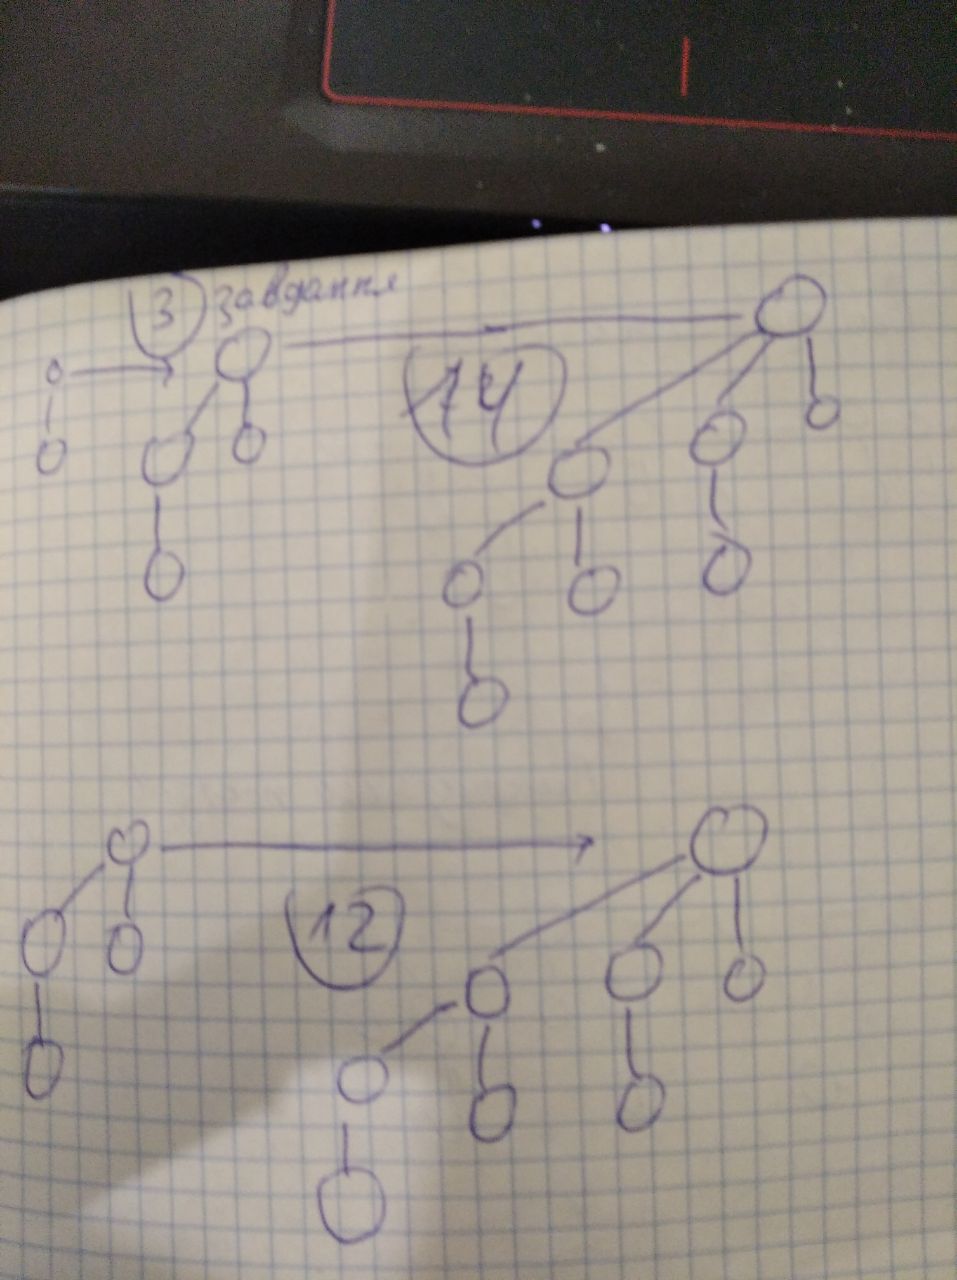 3 завдання
14
12